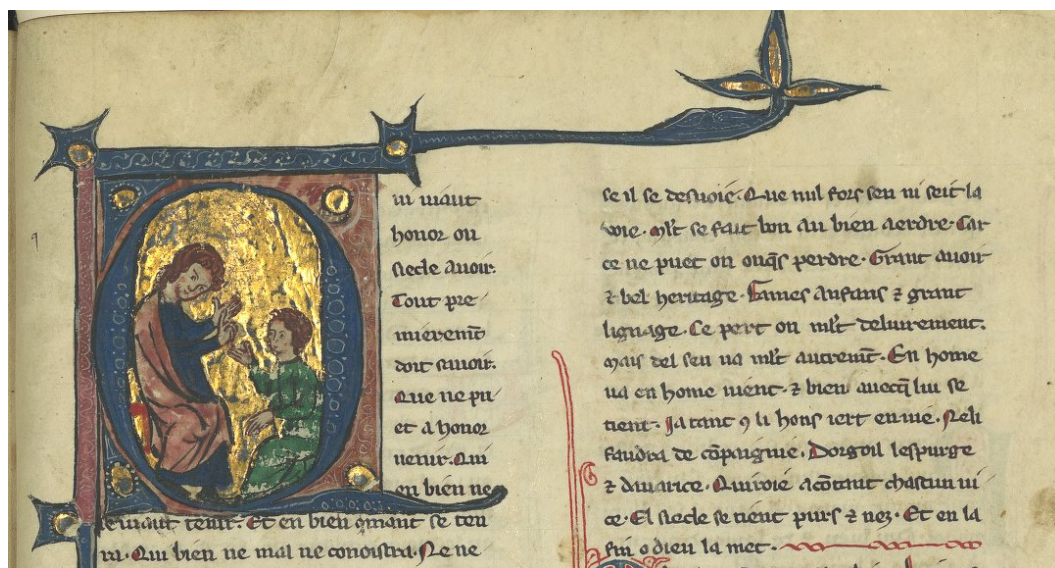 ui uiaut
honor ou
siecle auoir.
Tout pre
mieremt̄
doit sauoir.
Que ne pu
et a honor
uenir. Qui
en bien ne
se uiaut tenir. Et en bien omaut se ten
ra. Qui bien ne mal ne conoistra. Ne ne
se il se desuoie. Que nul fors sen ni seit la
uoie. Ml̄t se fait bon au bien aerdre. Car
ce ne puet on onq̄s perdre. Grant auoir
⁊ bel heritage. Fames anfans ⁊ grant
lignage. Ce pert on ml̄t deliurement.
Mais del sen ua ml̄t autremt̄. En home
ua en home uient. ⁊ bien auecq̄ lui se
tient. Ja tant ꝯ li hons iert en uie. Ne li
faudra de cōpaignie. Dorgoil lespurge
⁊ dauarice. Qui uoie acōtant chascun ui
ce. El siecle se tient purs ⁊ nez. Et en la
fin o dieu la met.